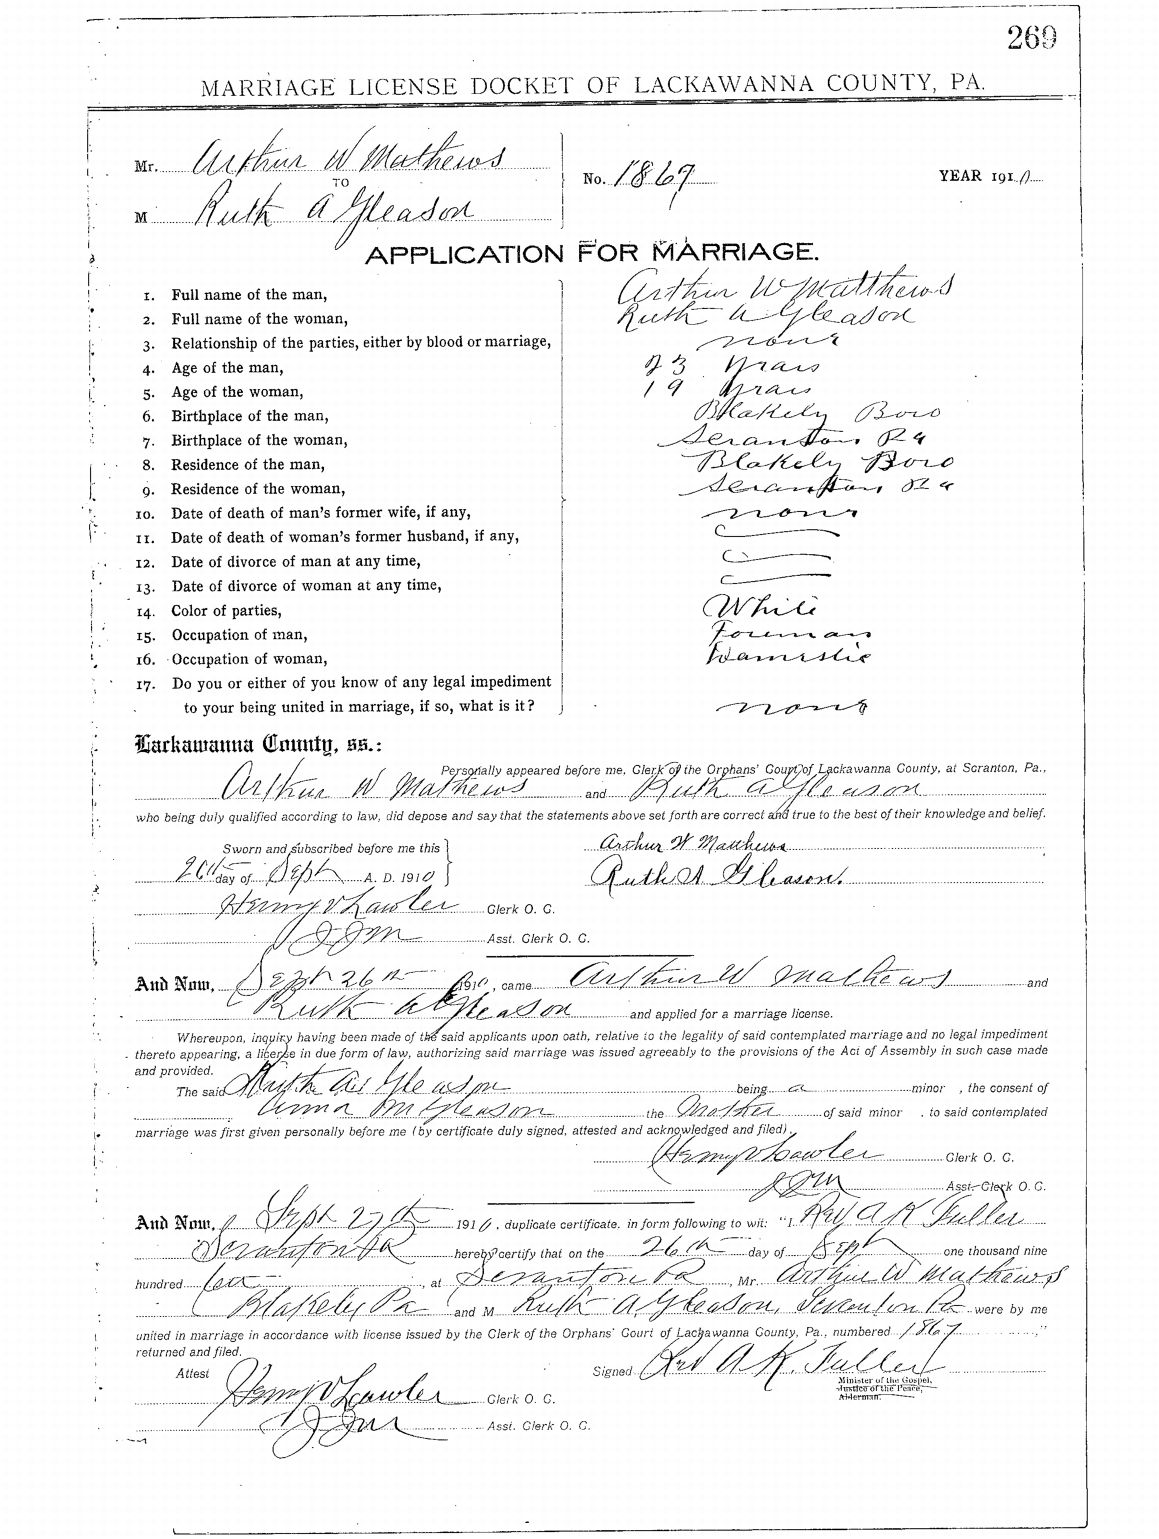 269
MARRIAGE LICENSE DOCKET OF LACKAWANNA COUNTY, PA.
Mr. Arthur W Mathews
TO
M Ruth A Gleason
No. 1867 YEAR 1910
APPLICATION FOR MARRIAGE.
1. Full name of the man, Arthur W Matthews
2. Full name of the woman, Ruth A Gleason
3. Relationship of the parties, either by blood or marriage, none
4. Age of the man, 23 years
5. Age of the woman, 19 years
6. Birthplace of the man, Blakely Boro
7. Birthplace of the woman, Scranton, Pa
8. Residence of the man, Blakely Boro
9. Residence of the woman, Scranton, Pa
10. Date of death of man's former wife, if any, none
11. Date of death of woman's former husband, if any,
12. Date of divorce of man at any time,
13. Date of divorce of woman at any time,
14. Color of parties, White
15. Occupation of man, Foreman
16. Occupation of woman, Domestic
17. Do you or either of you know of any legal impediment
to your being united in marriage, if so, what is it? none
Lackawanna County, ss.:
Personally appeared before me, Clerk of the Orphans' Court of Lackawanna County, at Scranton, Pa.,
Arthur W Mathews and Ruth A Gleason
who being duly qualified according to law, did depose and say that the statements above set forth are correct and true to the best of their knowledge and belief.
Sworn and subscribed before me this Arthur W Matthews
26th day of Sept A. D. 1910 Ruth A Gleason.
Henry V Lawler Clerk O. C.
JJM Asst. Clerk O. C.
And Now, Sept 26th 1910, came Arthur W Mathews and
Ruth A Gleason and applied for a marriage license.
Whereupon, inquiry having been made of the said applicants upon oath, relative to the legality of said contemplated marriage and no legal impediment
thereto appearing, a license in due form of law, authorizing said marriage was issued agreeably to the provisions of the Act of Assembly in such case made
and provided.
The said Ruth A Gleason being a minor, the consent of
Anna M Gleason the Mother of said minor, to said contemplated
marriage was first given personally before me (by certificate duly signed, attested and acknowledged and filed).
Henry V Lawler Clerk O. C.
JJM Asst. Clerk O. C.
And Now, Sept 27th 1910, duplicate certificate, in form following to wit: "I, Rev A K Fuller
Scranton Pa hereby certify that on the 26th day of Sept one thousand nine
hundred ten, at Scranton Pa, Mr. Arthur W Mathews
Blakely Pa and M Ruth A Gleason, Scranton Pa were by me
united in marriage in accordance with license issued by the Clerk of the Orphans' Court of Lackawanna County, Pa., numbered 1867 ,"
returned and filed.
Attest Signed Rev A K. Fuller
Minister of the Gospel,
Justice of the Peace,
Alderman.
Henry V Lawler Clerk O. C.
JJM Asst. Clerk O. C.